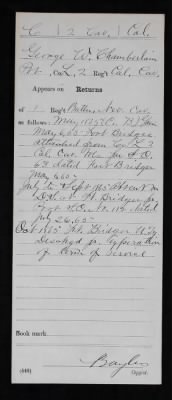 C | 2 Cav. | Cal.
George W. Chamberlain
Pvt., Co. L, 2 Reg't Cal. Cav.
Appears on
Returns
of 1 Reg't Battn. Nev. Cav.
as follows:
May 1865 Fort Bridger
attached from Co. L 2
Cal. Cav.
63 dated Fort Bridger
May 6 65
July to Sept 65 absent on
D.S. at Ft. Bridger
July 26, 65
Oct 1865 Ft. Bridger Uty
Dischgd pr. expiration
of term of service
Book mark:
Bayler
(448)
Copyist.